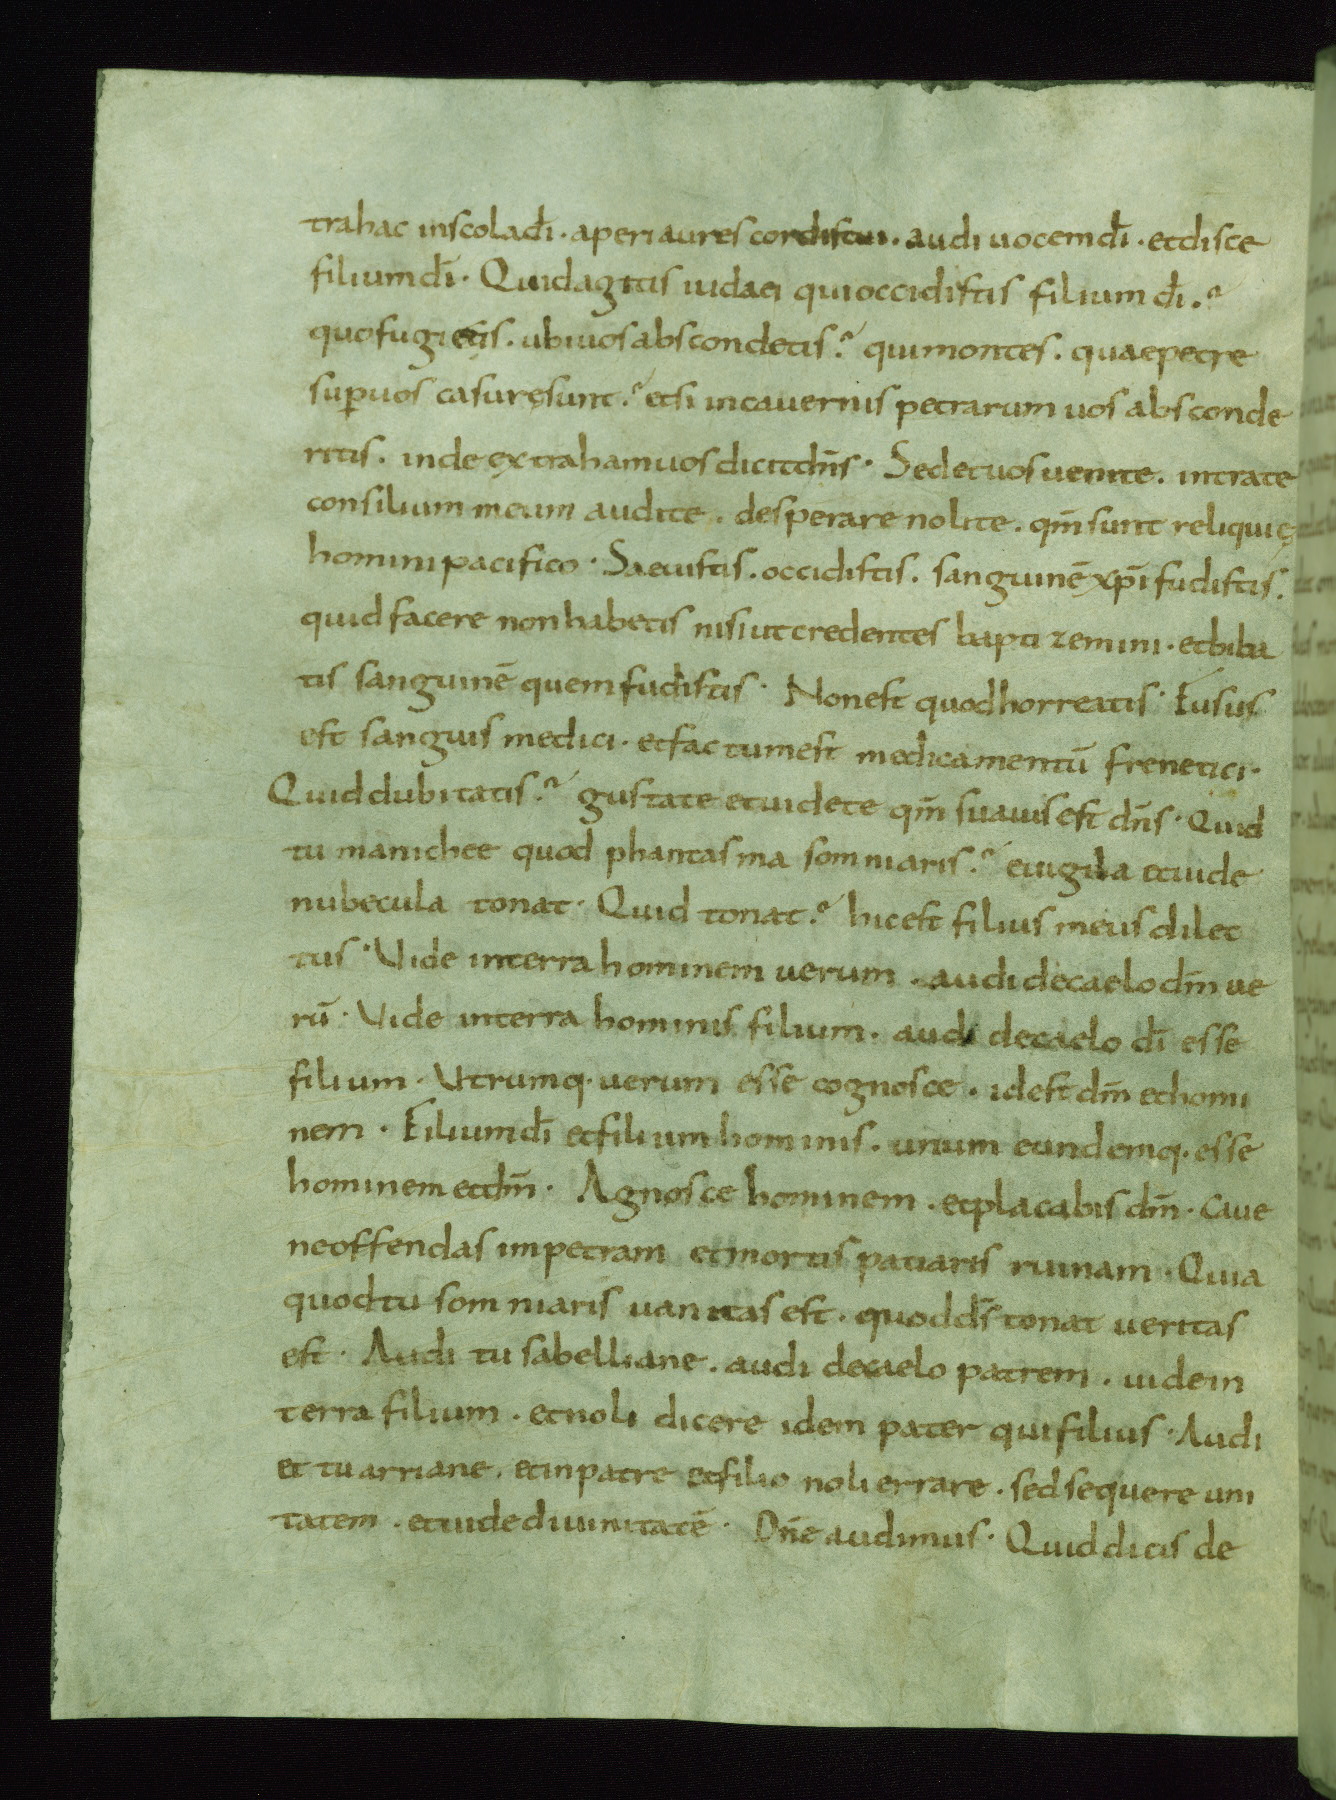 trahac inscola dī · aperi aures cordis tui · audi uocem dī · et disce
filium dī · Quid agitis iudaei qui occidistis filium dī .?
quo fugietis . ubi uos abscondetis .? qui montes . quae petre
sup̄ uos casurę sunt .? et si in cauernis petrarum uos absconde
ritis . inde extraham uos dicit dn̄s · Sed et uos uenite . intrate
consilium meum audite . desperare nolite . qm̄ sunt reliquię
homini pacifico · Saeuistis . occidistis . sanguinē xp̄i fudistis .
quid facere non habetis nisi ut credentes baptizemini · et biba
tis sanguinē quem fudistis · Non est quod horreatis · Fusus
est sanguis medici · et factum est medicamentū frenetici ·
Quid dubitatis .? gustate et uidete qm̄ suauis est dn̄s · Quid
tu manichee quod phantasma somniaris .? euigila et uide
nubecula tonat · Quid tonat .? hic est filius meus dilec
tus · Vide in terra hominem uerum . audi de caelo dm̄ ue
rū · Vide in terra hominis filium . audi de caelo dī esse
filium · Vtrumq· uerum esse cognosce . id est dm̄ et homi
nem · Filium dī et filium hominis . unum eundemq· esse
hominem et dm̄ · Agnosce hominem . et placabis dm̄ · Caue
ne offendas in petram et mortis patiaris ruinam · Quia
quod tu somniaris uanitas est . quod ds̄ tonat ueritas
est · Audi tu sabelliane . audi de caelo patrem . uide in
terra filium . et noli dicere idem pater qui filius · Audi
et tu arriane . et in patre et filio noli errare . sed sequere uni
tatem . et uide diuinitatē · Dn̄e audimus · Quid dicis de